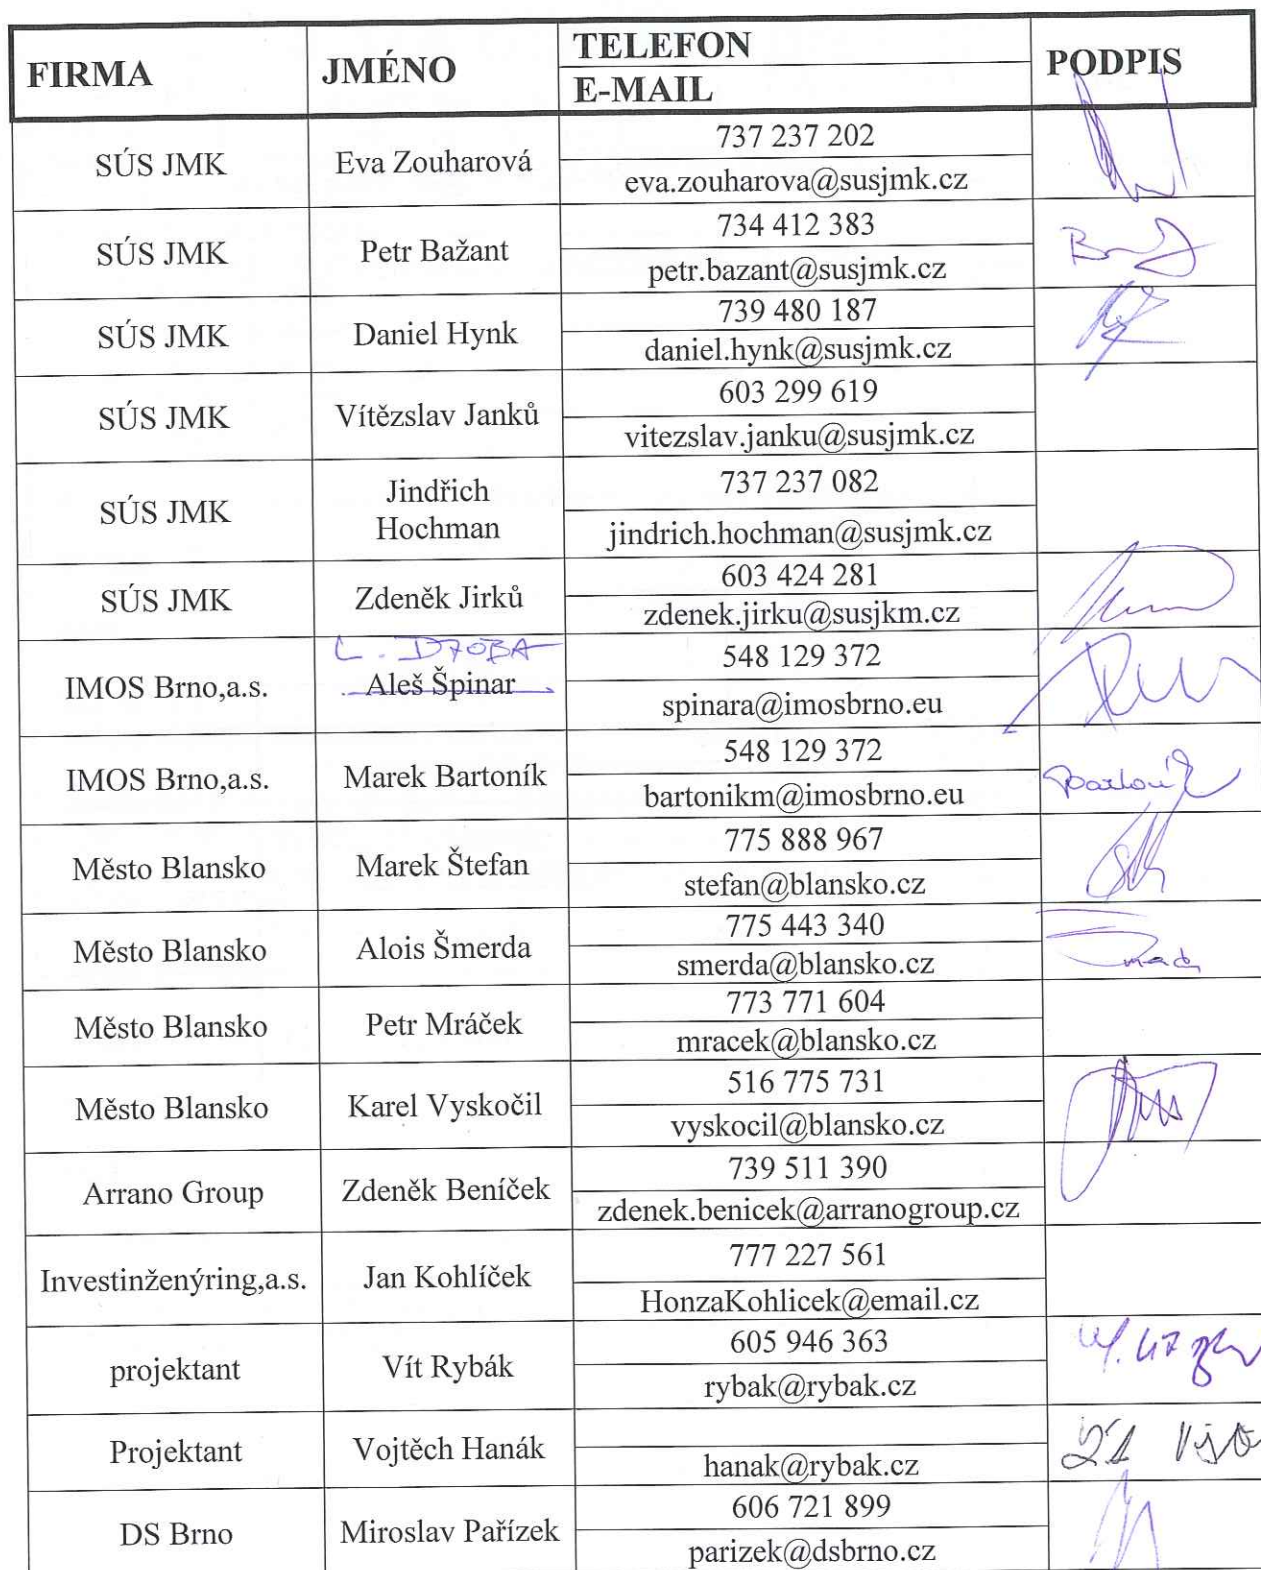 FIRMA JMÉNO TELEFON PODPIS
E-MAIL
SÚS JMK Eva Zouharová 737 237 202
eva.zouharova@susjmk.cz
SÚS JMK Petr Bažant 734 412 383
petr.bazant@susjmk.cz
SÚS JMK Daniel Hynk 739 480 187
daniel.hynk@susjmk.cz
SÚS JMK Vítězslav Janků 603 299 619
vitezslav.janku@susjmk.cz
SÚS JMK Jindřich Hochman 737 237 082
jindrich.hochman@susjmk.cz
SÚS JMK Zdeněk Jirků 603 424 281
zdenek.jirku@susjkm.cz
L. DZOBA
IMOS Brno,a.s. Aleš Špinar 548 129 372
spinara@imosbrno.eu
IMOS Brno,a.s. Marek Bartoník 548 129 372
bartonikm@imosbrno.eu
Město Blansko Marek Štefan 775 888 967
stefan@blansko.cz
Město Blansko Alois Šmerda 775 443 340
smerda@blansko.cz
Město Blansko Petr Mráček 773 771 604
mracek@blansko.cz
Město Blansko Karel Vyskočil 516 775 731
vyskocil@blansko.cz
Arrano Group Zdeněk Beníček 739 511 390
zdenek.benicek@arranogroup.cz
Investinženýring,a.s. Jan Kohlíček 777 227 561
HonzaKohlicek@email.cz
projektant Vít Rybák 605 946 363
rybak@rybak.cz
Projektant Vojtěch Hanák
hanak@rybak.cz
DS Brno Miroslav Pařízek 606 721 899
parizek@dsbrno.cz